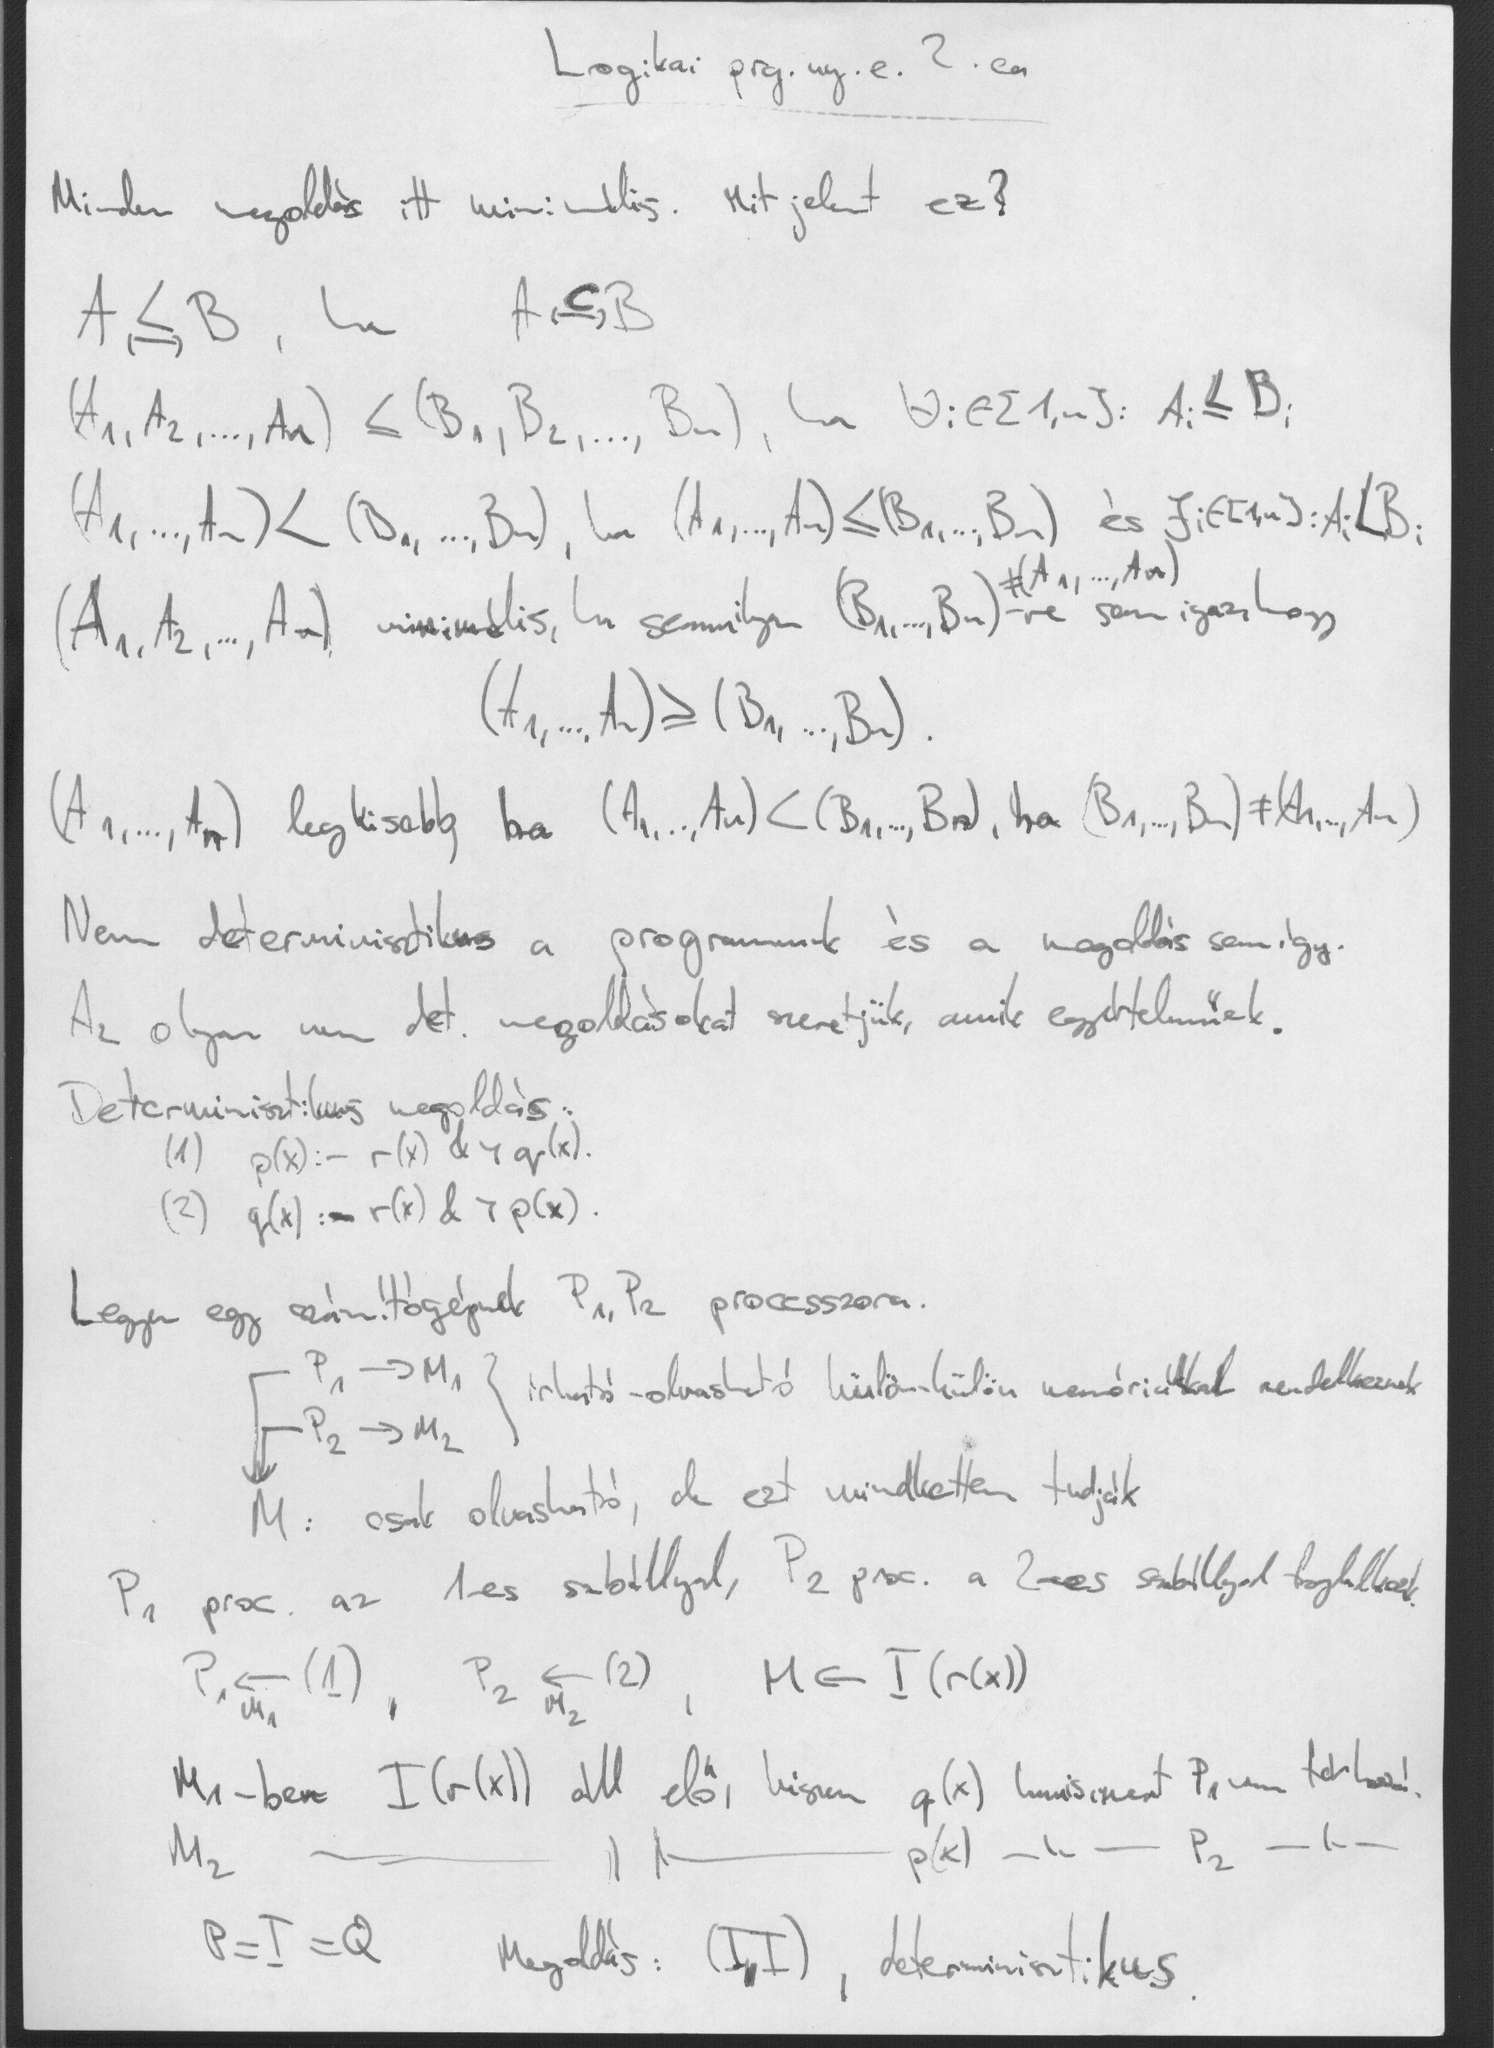 Logikai prg. ny. e. 2. ea
Minden megoldás itt minimális. Mit jelent ez?
A ≤ B, ha A ⊆ B
(A₁, A₂, ..., Aₙ) ≤ (B₁, B₂, ..., Bₙ), ha ∀i∈[1,n]: Aᵢ ≤ Bᵢ
(A₁, ..., Aₙ) < (B₁, ..., Bₙ), ha (A₁, ..., Aₙ) ≤ (B₁, ..., Bₙ) és ∃i∈[1,n]: Aᵢ < Bᵢ
(A₁, A₂, ..., Aₙ) minimális, ha semmilyen (B₁, ..., Bₙ) ≠(A₁, ..., Aₙ) -re sem igaz, hogy
(A₁, ..., Aₙ) ≥ (B₁, ..., Bₙ).
(A₁, ..., Aₙ) legkisebb, ha (A₁, ..., Aₙ) < (B₁, ..., Bₙ), ha (B₁, ..., Bₙ) ≠ (A₁, ..., Aₙ)
Nem determinisztikus a programunk és a megoldás sem így.
Az olyan nem det. megoldásokat szeretjük, amik egyértelműek.
Determinisztikus megoldás:
(1) p(x) :- r(x) & ¬ q(x).
(2) q(x) :- r(x) & ¬ p(x).
Legyen egy számítógépnek P₁, P₂ processzora.
P₁ → M₁ } írható-olvasható külön-külön memóriákkal rendelkeznek
P₂ → M₂
M: csak olvasható, de ezt mindketten tudják
P₁ proc. az 1-es szabállyal, P₂ proc. a 2-es szabállyal foglalkozik.
P₁ ←M₁ (1), P₂ ←M₂ (2), M ← I(r(x))
M₁-ben I(r(x)) áll elő, hiszen q(x) P₁ nem
M₂ — 〃 — p(x) — 〃 — P₂ — 〃 —
P = I = Q Megoldás: (I, I), determinisztikus.